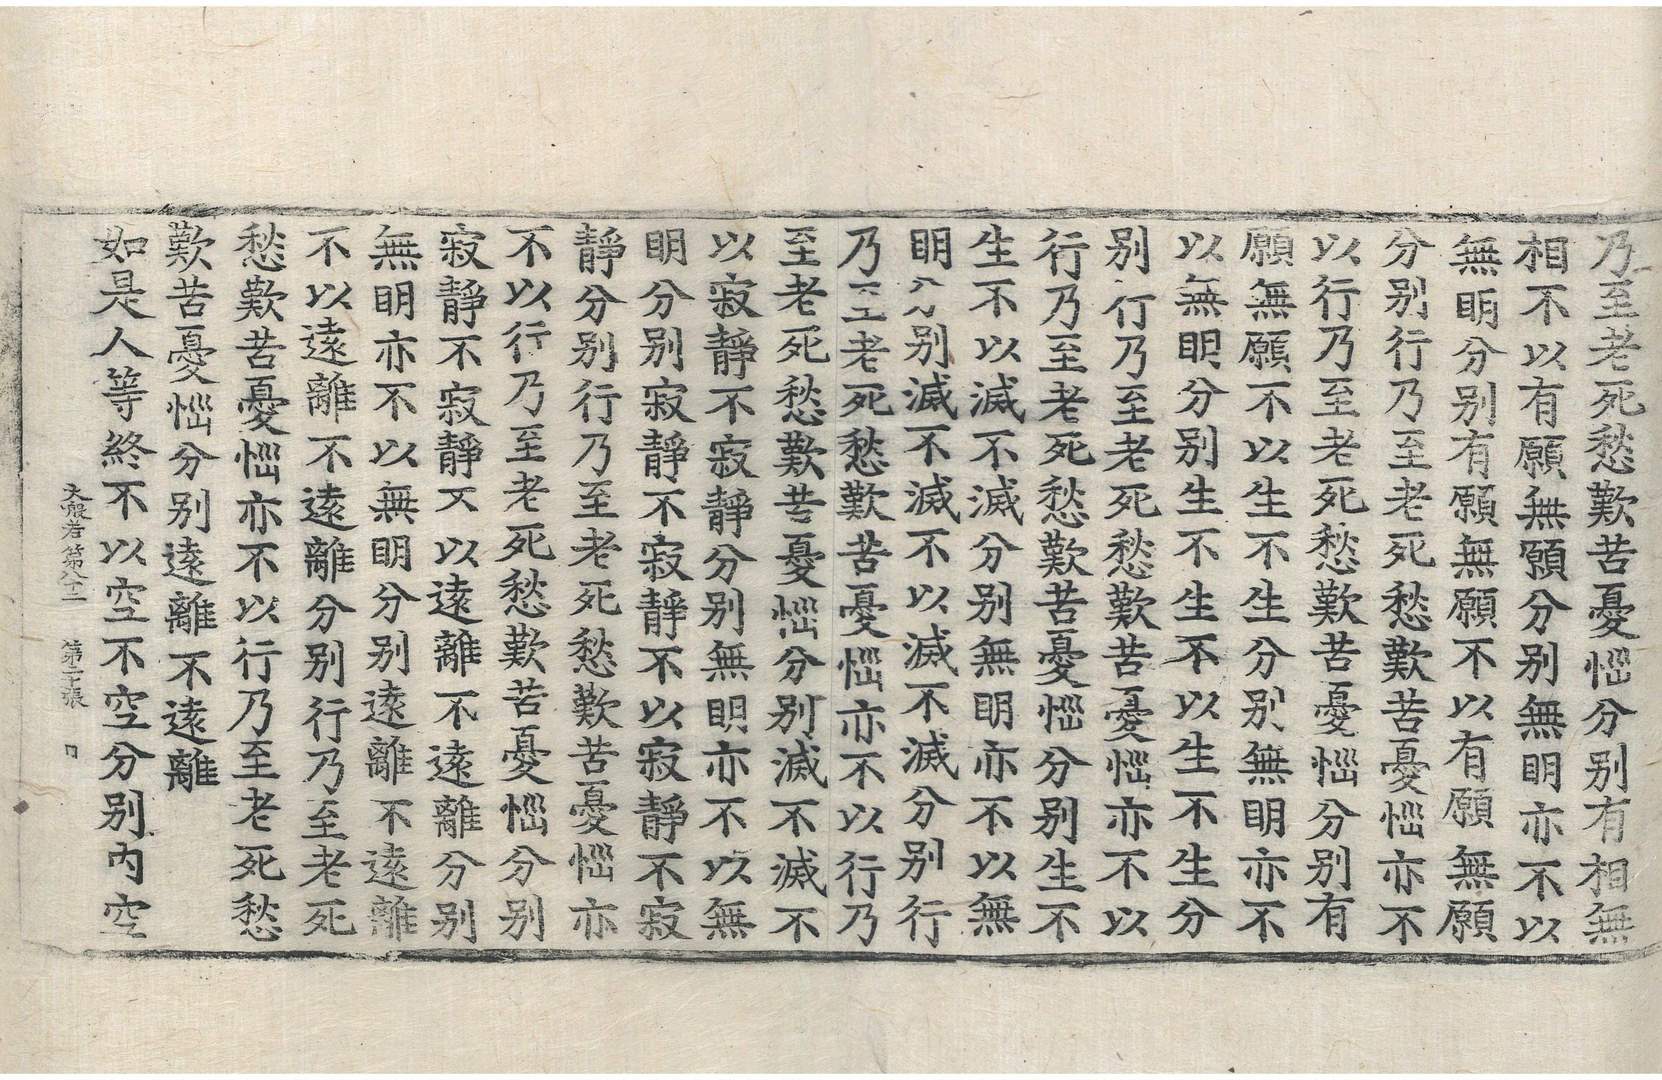 乃至老死愁歎苦憂惱分別有相無
相不以有願無願分別無明亦不以
無明分別有願無願不以有願無願
分別行乃至老死愁歎苦憂惱亦不
以行乃至老死愁歎苦憂惱分別有
願無願不以生不生分別無明亦不
以無明分別生不生不以生不生分
別行乃至老死愁歎苦憂惱亦不以
行乃至老死愁歎苦憂惱分別生不
生不以滅不滅分別無明亦不以無
明分別滅不滅不以滅不滅分別行
乃至老死愁歎苦憂惱亦不以行乃
至老死愁歎苦憂惱分別滅不滅不
以寂靜不寂靜分別無明亦不以無
明分別寂靜不寂靜不以寂靜不寂
靜分別行乃至老死愁歎苦憂惱亦
不以行乃至老死愁歎苦憂惱分別
寂靜不寂靜不以遠離不遠離分別
無明亦不以無明分別遠離不遠離
不以遠離不遠離分別行乃至老死
愁歎苦憂惱亦不以行乃至老死愁
歎苦憂惱分別遠離不遠離
如是人等終不以空不空分別內空
大般若第八十二 第二十張